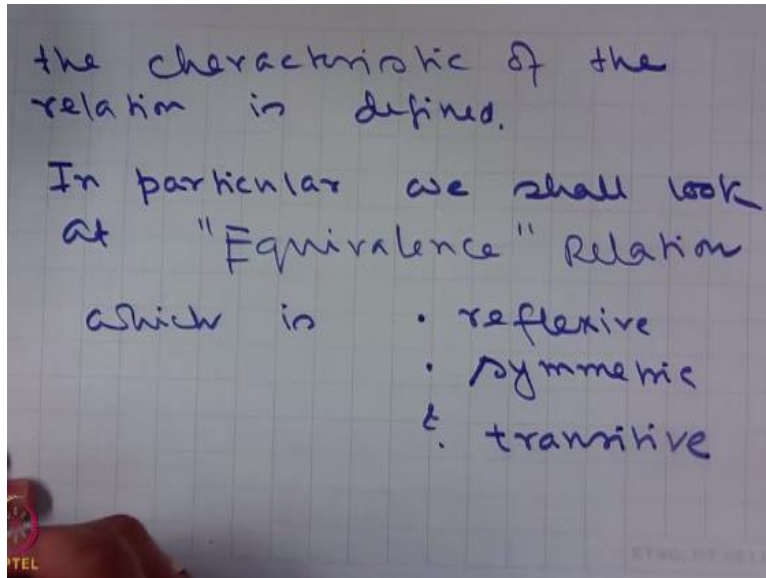 the cheracteristic of the
relation is defined.
In particular we shall look
at "Equivalence" Relation
which is • reflexive
• symmetric
&. transitive
PTEL